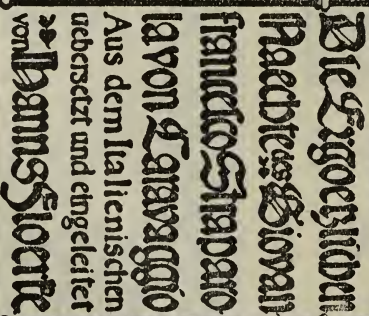 Die Ergoetzlichen
Naechte des Giovan
francesco Straparo
la von Caravaggio
Aus dem Italienischen
uebersetzt und eingeleitet
von Hanns Floerke